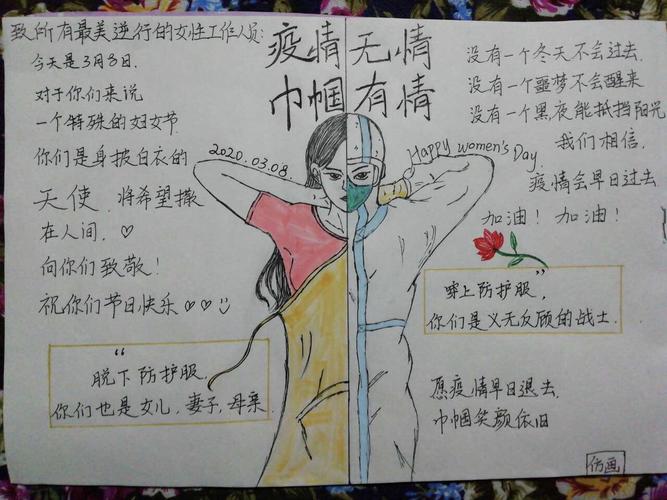 致所有最美逆行的女性工作人员:
今天是3月8日.
对于你们来说
一个特殊的妇女节
你们是身披白衣的
天使 将希望撒
在人间.
向你们致敬!
祝你们节日快乐
“
脱下防护服,
你们也是女儿,妻子,母亲
疫情无情
巾帼有情
2020.03.08.
Happy women's Day.
没有一个冬天不会过去,
没有一个噩梦不会醒来
没有一个黑夜能抵挡阳光
我们相信,
疫情会早日过去
加油! 加油!
穿上防护服,”
你们是义无反顾的战士.
愿疫情早日退去,
巾帼笑颜依旧
仿画